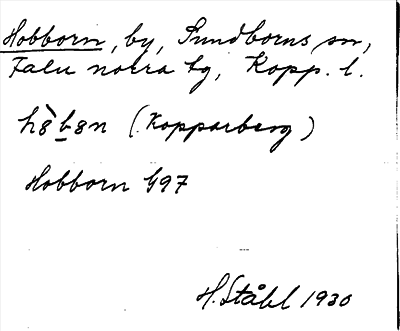 Hobborn, by, Sundborns sn,
Falu norra tg, Kopp. l.
(Kopparberg)
Hobborn 497
H. Ståhl 1930